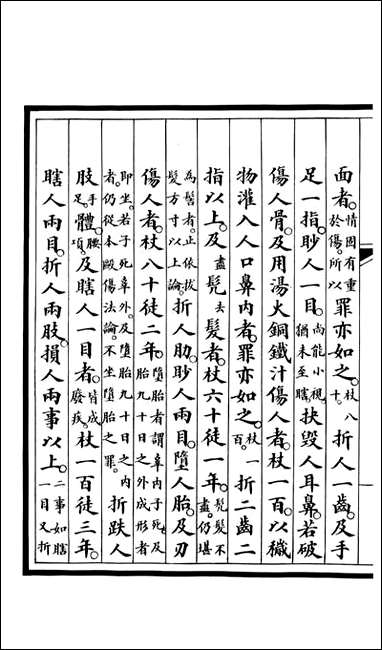 面者情因有重於傷所以罪亦如之杖八十折人一齒及手
足一指眇人一目尚能小視猶未至瞎抉毀人耳鼻若破
傷人骨及用湯火銅鐵汁傷人者杖一百以穢
物灌入人口鼻內者罪亦如之杖一百折二齒二
指以上及盡髡去髮者杖六十徒一年髡髮不盡仍堪
為髻者止依拔髮方寸以上論折人肋眇人兩目墮人胎及刃
傷人者杖八十徒二年墮胎者謂辜內子死及胎九十日之外成形者
即坐若子死辜外及墮胎九十日之內者仍從本毆傷法論不坐墮胎之罪折跌人
肢手足體腰項及瞎人一目者皆成廢疾杖一百徒三年
瞎人兩目折人兩肢損人兩事以上二事如瞎一目又折